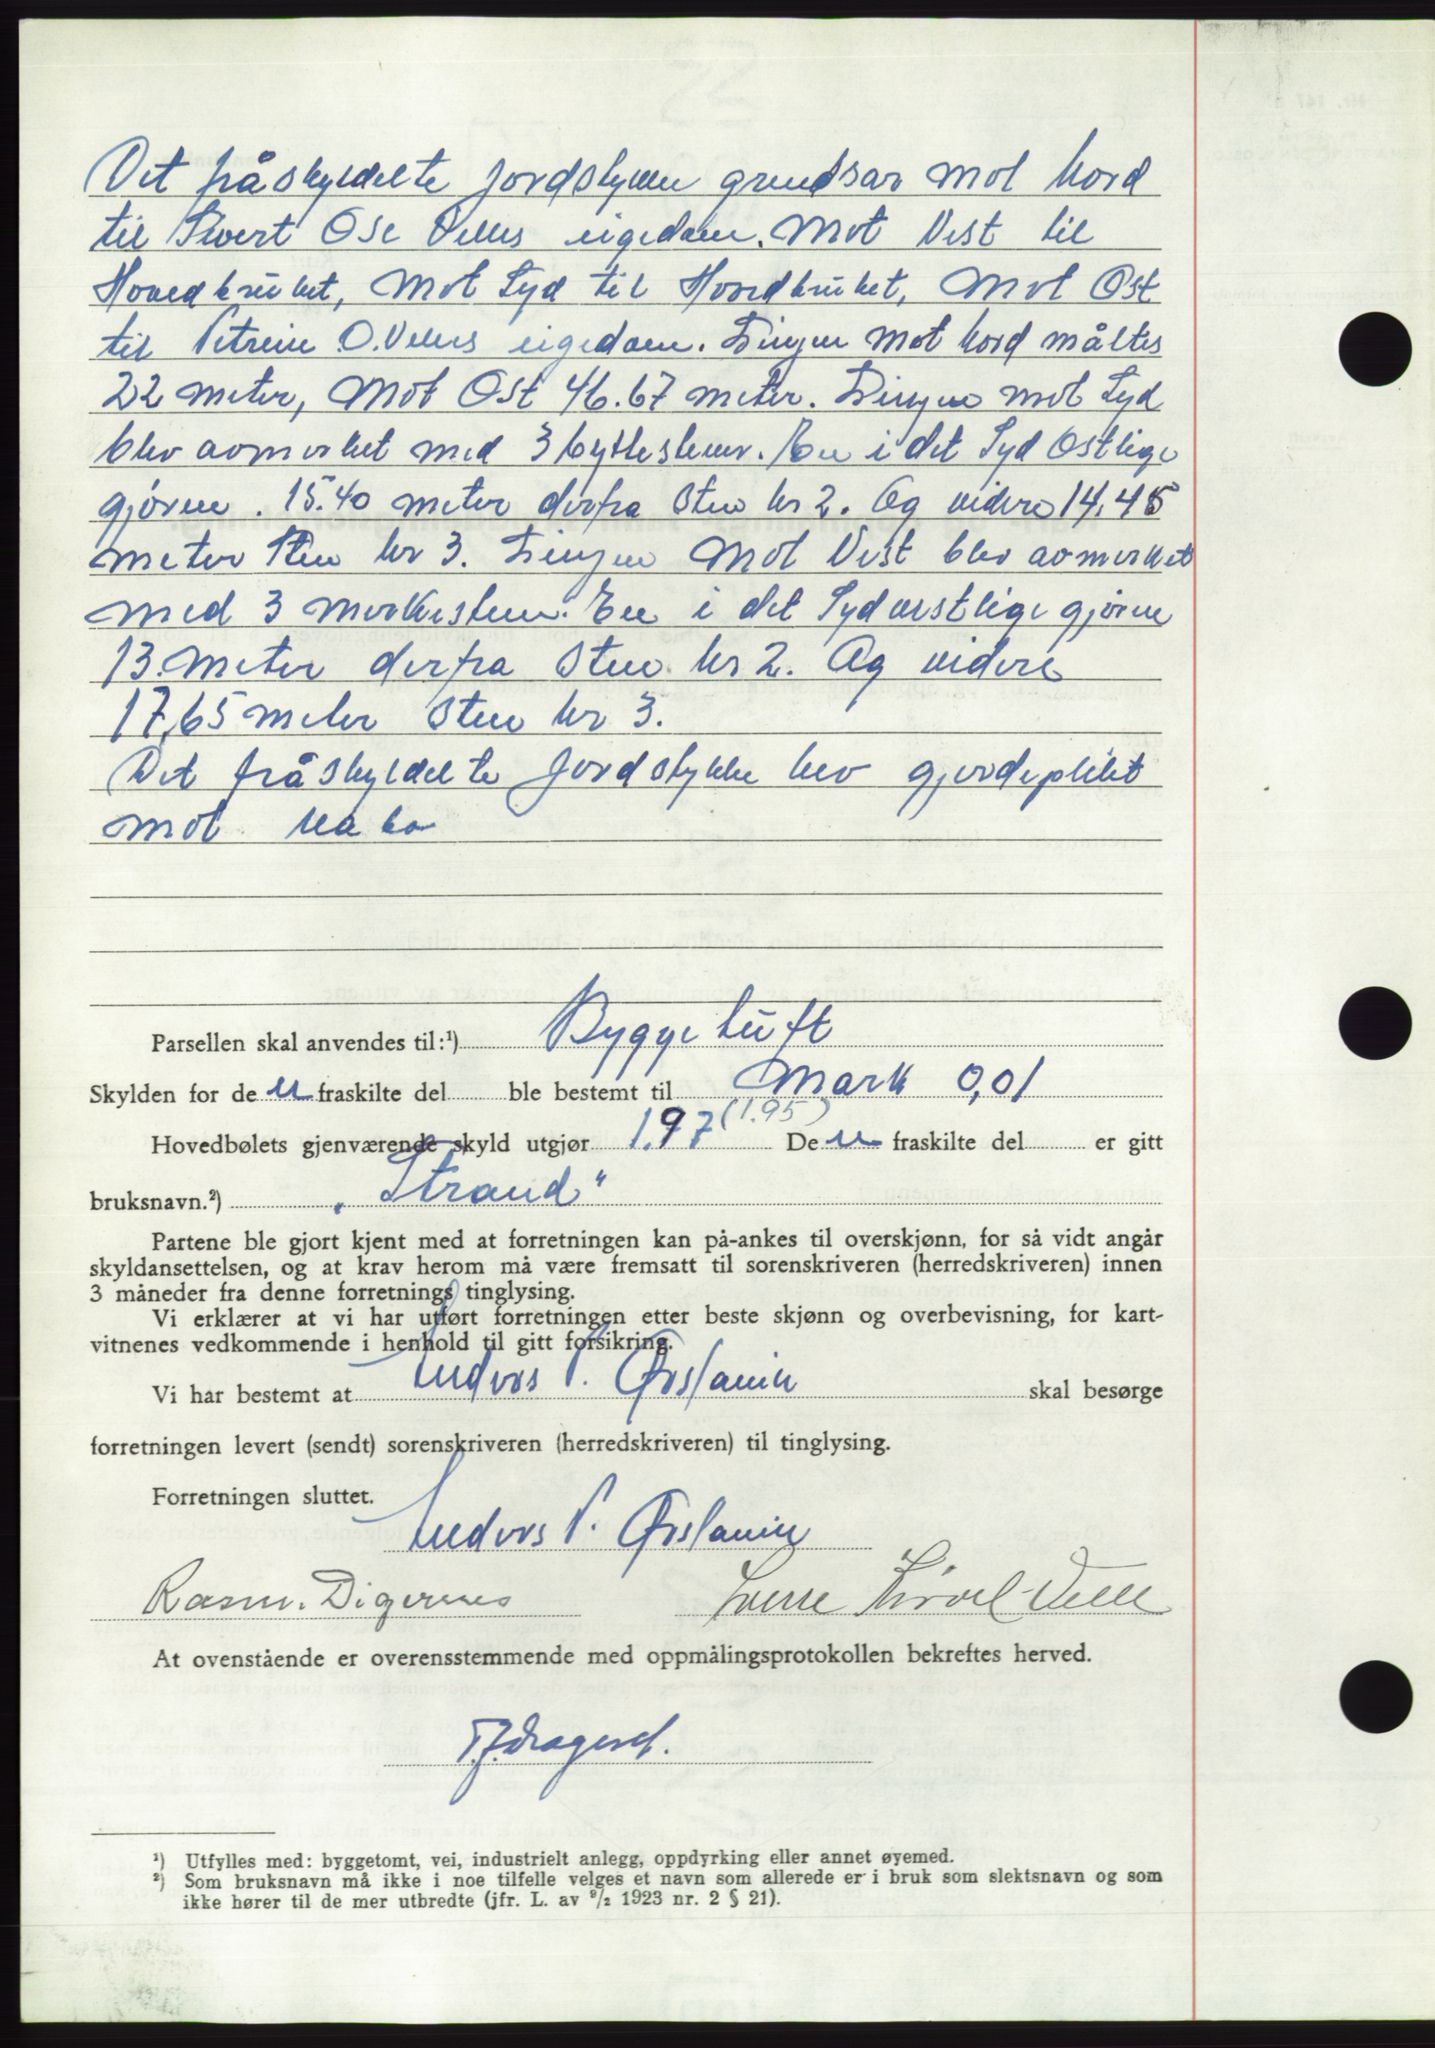 Det fråskyldelte Jordstykke grendsar Mot Nord
til Sivert Ose Velles eigedom. Mot Vest til
Hovedbruket, Mot Syd til Hovedbruket, Mot Ost
til Petrine O. Velles eigedom. Linjen Mot Nord måltes
22 meter, Mot Ost 46.67 meter. Linjen mot Syd
blev avmerket med 3 byttestener. En i det Syd Ostlige
gjørne. 15.40 meter derfra Sten Nr 2. Og videre 14,45
meter Sten Nr 3. Linjen Mot Vest blev avmerket
med 3 Merkestene. En i det Sydvestlige gjørne
13. Meter derfra Sten Nr 2. Og videre
17,65 meter Sten Nr 3.
Det fråskyldelte Jordstykke hev gjerdeplikt
Mot Nabo
Parsellen skal anvendes til:¹) Byggetuft
Skylden for de n fraskilte del ble bestemt til Mark 0,01
(1.95)
Hovedbølets gjenværende skyld utgjør 1.97 De n fraskilte del er gitt
bruksnavn.²) „Strand"
Partene ble gjort kjent med at forretningen kan på-ankes til overskjønn, for så vidt angår
skyldansettelsen, og at krav herom må være fremsatt til sorenskriveren (herredskriveren) innen
3 måneder fra denne forretnings tinglysing.
Vi erklærer at vi har utført forretningen etter beste skjønn og overbevisning, for kart-
vitnenes vedkommende i henhold til gitt forsikring.
Vi har bestemt at Anders P. Ørslavik skal besørge
forretningen levert (sendt) sorenskriveren (herredskriveren) til tinglysing.
Forretningen sluttet.
Anders P. Ørslavik
Rasm. Digernes Sverre Kivel-Velle
At ovenstående er overensstemmende med oppmålingsprotokollen bekreftes herved.
¹) Utfylles med: byggetomt, vei, industrielt anlegg, oppdyrking eller annet øyemed.
²) Som bruksnavn må ikke i noe tilfelle velges et navn som allerede er i bruk som slektsnavn og som
ikke hører til de mer utbredte (jfr. L. av ⁹/₂ 1923 nr. 2 § 21).